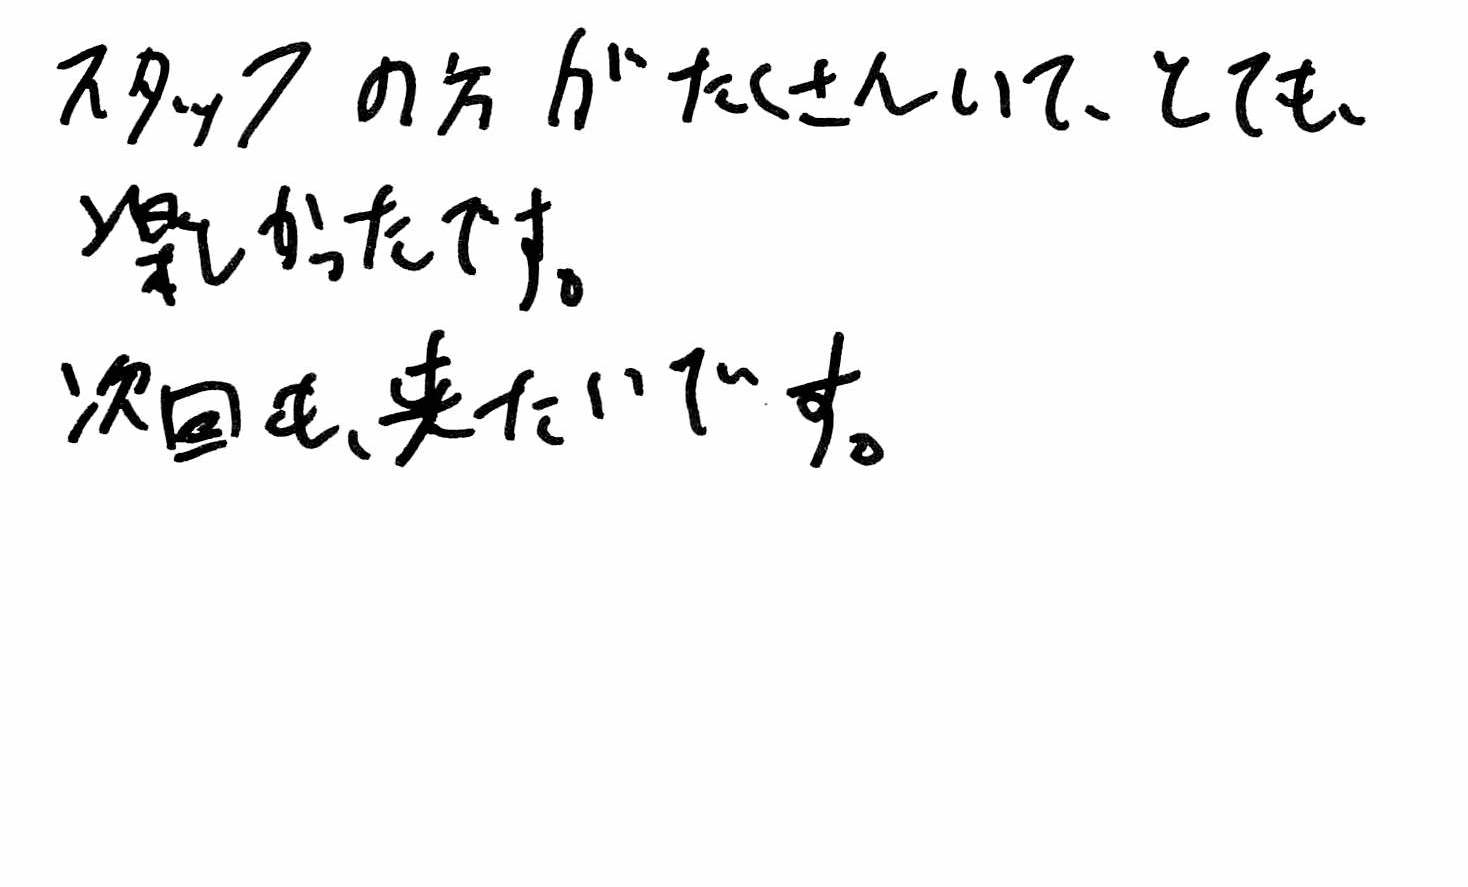 スタッフの方がたくさんいて、とても、
楽しかったです。
次回も、来たいです。